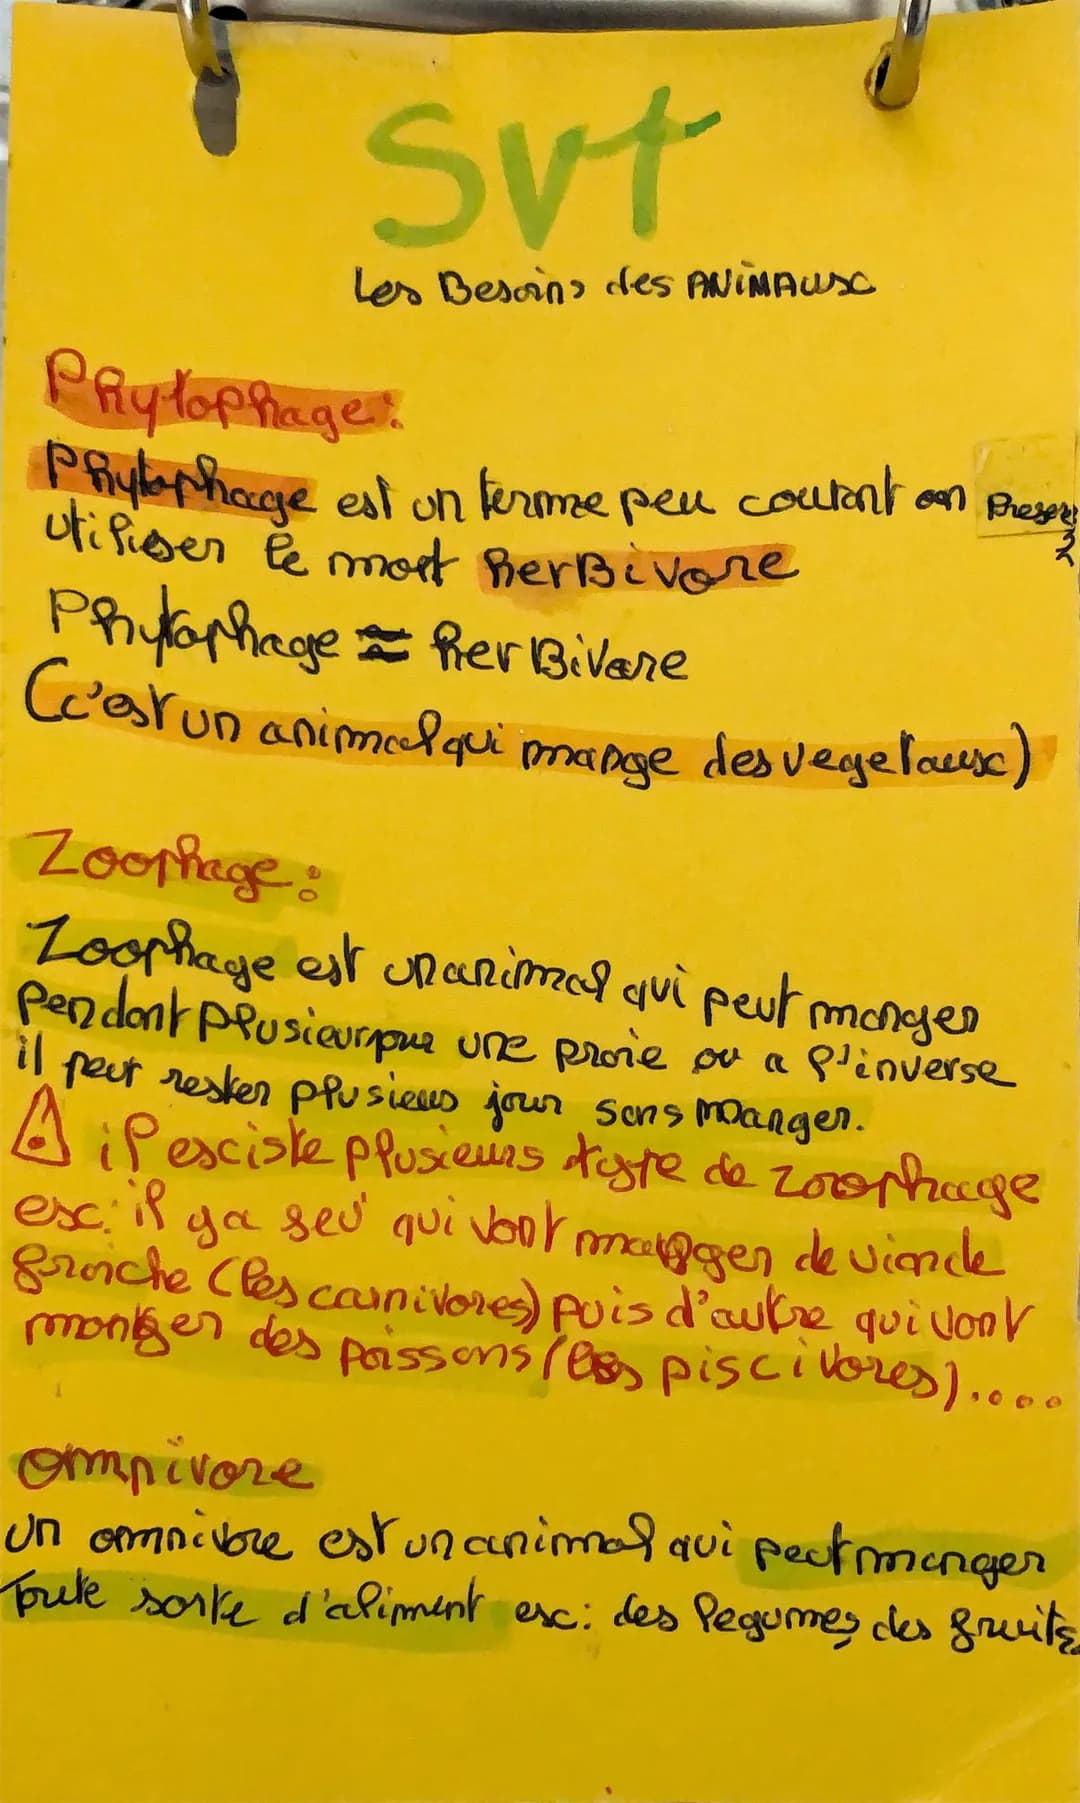 Svt
Les Besoins des ANiMAUX
Phytophage:
Phytophage est un terme peu courant on Preser
2
utiliser le mort herBivore
Phytophage ≈ herBivore
(c'est un animal qui mange des vegetaux)
Zoophage:
Zoophage est un animal qui peut manger
pendant plusieur une proie ou a l'inverse
il peut rester plusieus jour sans manger.
⚠ il existe plusieurs type de zoophage
ex: il ya seu qui vont manger de viande
fraiche (les carnivores) puis d'autre qui vont
manger des poissons (les piscivores)....
omnivore
un omnivore est un animal qui peut manger
Toute sorte d'aliment ex: des legumes, des fruits